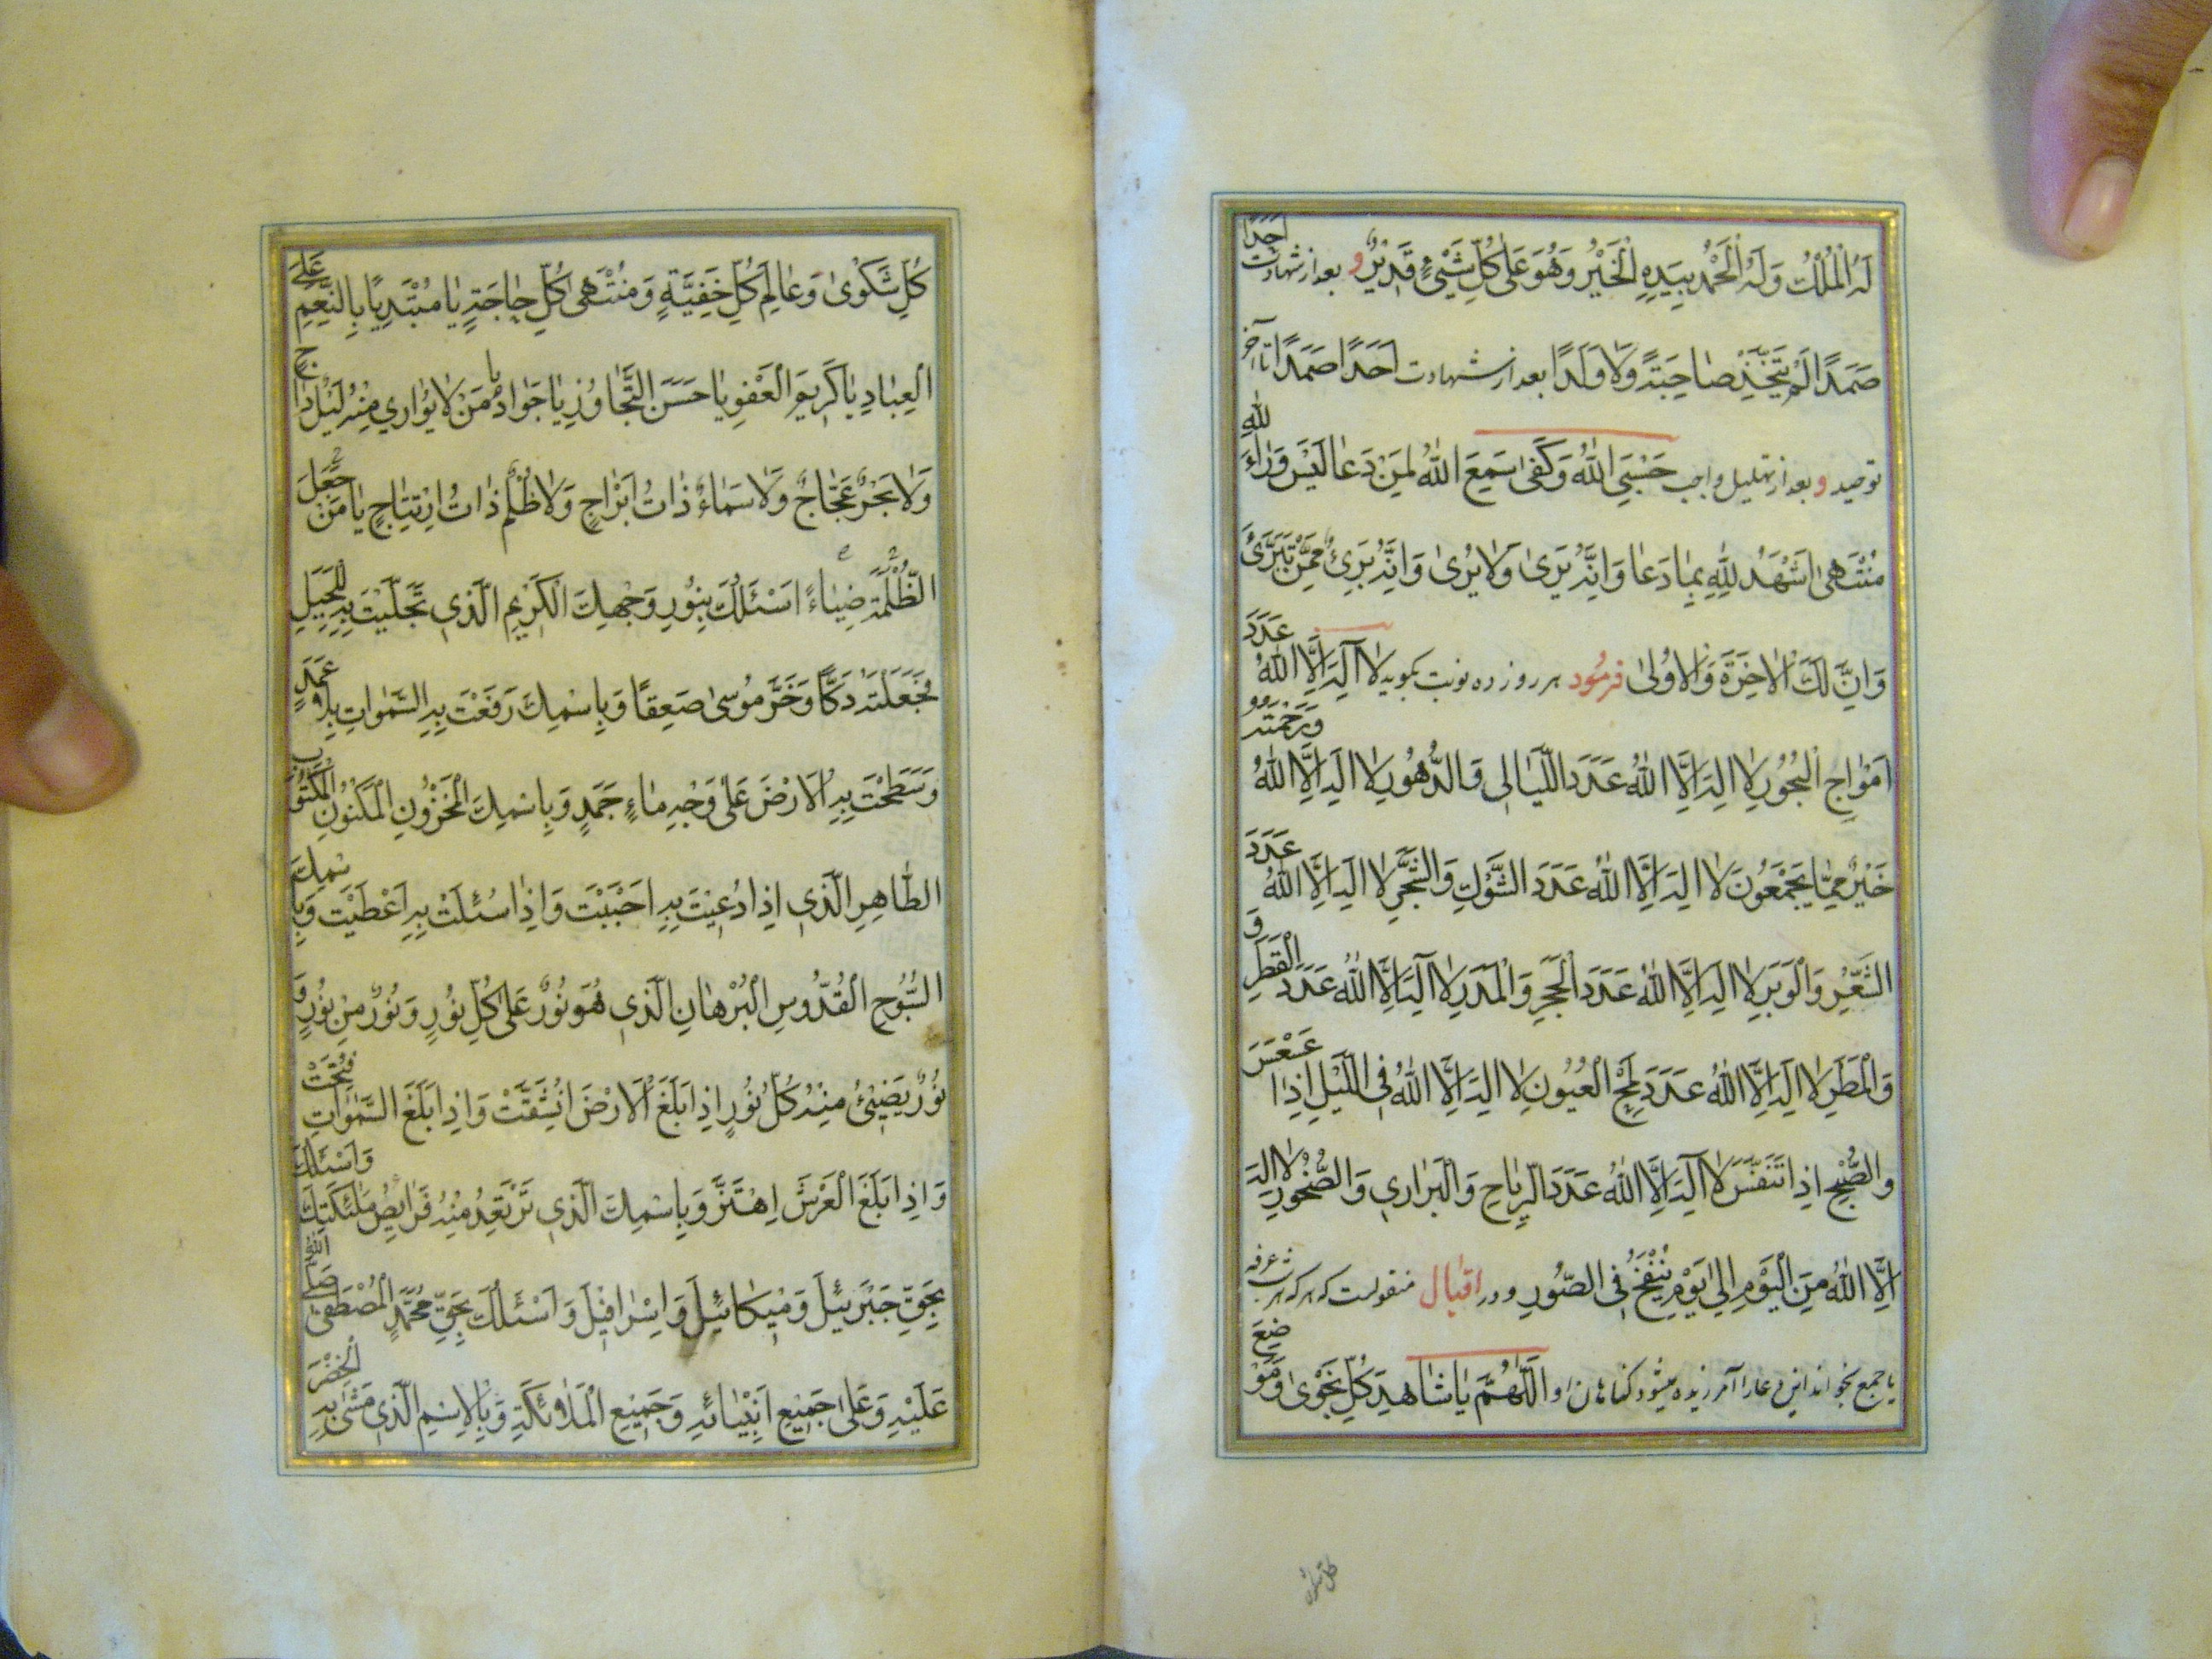 لَهُ الْمُلْكُ وَلَهُ الْحَمْدُ بِيَدِهِ الْخَيْرُ وَهُوَ عَلٰى كُلِّ شَيْئٍ قَدِيْرٌ و بعد از شهادت اَحَدًا
صَمَدًا لَمْ يَتَّخِذْ صٰاحِبَةً وَلٰا وَلَدًا بعد از شهادت اَحَدًا صَمَدًا تا آخر
توحید و بعد از تهلیل واجب حَسْبِيَ اللّٰهُ وَكَفٰى سَمِعَ اللّٰهُ لِمَنْ دَعٰا لَيْسَ وَرٰاءَ اللّٰهِ
مُنْتَهٰى اَشْهَدُ لِلّٰهِ بِمٰا دَعٰا وَاِنَّهُ يَرٰى وَلٰا يُرٰى وَاِنَّهُ بَرِئٌ مِمَّنْ تَبَرَّئَ
وَاِنَّ لَكَ الْاٰخِرَةَ وَالْاُولٰى فرمود هر روز ده نوبت بگوید لٰا اِلٰهَ اِلَّا اللّٰهُ عَدَدَ
اَمْوٰاجِ الْبُحُوْرِ لٰا اِلٰهَ اِلَّا اللّٰهُ عَدَدَ اللَّيٰالِى وَالدُّهُوْرِ لٰا اِلٰهَ اِلَّا اللّٰهُ وَرَحْمَتُهُ
خَيْرٌ مِمّٰا يَجْمَعُوْنَ لٰا اِلٰهَ اِلَّا اللّٰهُ عَدَدَ الشَّوْكِ وَالشَّجَرِ لٰا اِلٰهَ اِلَّا اللّٰهُ عَدَدَ
الشَّعْرِ وَالْوَبَرِ لٰا اِلٰهَ اِلَّا اللّٰهُ عَدَدَ الْحَجَرِ وَالْمَدَرِ لٰا اِلٰهَ اِلَّا اللّٰهُ عَدَدَ الْقَطْرِ
وَالْمَطَرِ لٰا اِلٰهَ اِلَّا اللّٰهُ عَدَدَ لَمْحِ الْعُيُوْنِ لٰا اِلٰهَ اِلَّا اللّٰهُ فِى اللَّيْلِ اِذٰا عَسْعَسَ
وَالصُّبْحِ اِذٰا تَنَفَّسَ لٰا اِلٰهَ اِلَّا اللّٰهُ عَدَدَ الرِّيٰاحِ وَالْبَرٰارِى وَالصُّخُوْرِ لٰا اِلٰهَ
اِلَّا اللّٰهُ مِنَ الْيَوْمِ اِلٰى يَوْمِ يُنْفَخُ فِى الصُّوْرِ و در اقبال منقولست که هر که در شب عرفه
یا جمع بخواند این دعا را آمرزیده میشود گناهان او اَللّٰهُمَّ يٰا شٰاهِدَ كُلِّ نَجْوٰى وَمَوْضِعَ
كُلِّ شَكْوٰى وَعٰالِمَ كُلِّ خَفِيَّةٍ وَمُنْتَهٰى كُلِّ حٰاجَةٍ يٰا مُبْتَدِيًا بِالنِّعَمِ عَلَى
الْعِبٰادِ يٰا كَرِيْمَ الْعَفْوِ يٰا حَسَنَ التَّجٰاوُزِ يٰا جَوٰادُ يٰا مَنْ لٰا يُوٰارِي مِنْهُ لَيْلٌ دٰاجٍ
وَلٰا بَحْرٌ عَجّٰاجٌ وَلٰا سَمٰاءٌ ذٰاتُ اَبْرٰاجٍ وَلٰا ظُلَمٌ ذٰاتُ ارْتِيٰاجٍ يٰا مَنْ جَعَلَ
الظُّلْمَةَ ضِيٰاءً اَسْئَلُكَ بِنُوْرِ وَجْهِكَ الْكَرِيْمِ الَّذِى تَجَلَّيْتَ بِهِ لِلْجَبَلِ
فَجَعَلْتَهُ دَكًّا وَخَرَّ مُوْسٰى صَعِقًا وَبِاسْمِكَ رَفَعْتَ بِهِ السَّمٰوٰاتِ بِلٰا عَمَدٍ
وَسَطَحْتَ بِهِ الْاَرْضَ عَلٰى وَجْهِ مٰاءٍ جَمَدٍ وَبِاسْمِكَ الْمَخْزُوْنِ الْمَكْنُوْنِ الْمَكْتُوْبِ
الطّٰاهِرِ الَّذِى اِذٰا دُعِيْتَ بِهِ اَجَبْتَ وَاِذٰا سُئِلْتَ بِهِ اَعْطَيْتَ وَبِاسْمِكَ
السُّبُّوْحِ الْقُدُّوْسِ الْبُرْهٰانِ الَّذِى هُوَ نُوْرٌ عَلٰى كُلِّ نُوْرٍ وَنُوْرٌ مِنْ نُوْرٍ وَ
نُوْرٌ يُضِيْئُ مِنْهُ كُلُّ نُوْرٍ اِذٰا بَلَغَ الْاَرْضَ انْشَقَّتْ وَاِذٰا بَلَغَ السَّمٰوٰاتِ فُتِحَتْ
وَاِذٰا بَلَغَ الْعَرْشَ اِهْتَزَّ وَبِاسْمِكَ الَّذِى تَرْتَعِدُ مِنْهُ فَرٰايِصُ مَلٰئِكَتِكَ وَاَسْئَلُكَ
بِحَقِّ جَبْرَئِيْلَ وَمِيْكٰائِيْلَ وَاِسْرٰافِيْلَ وَاَسْئَلُكَ بِحَقِّ مُحَمَّدٍ الْمُصْطَفٰى صَلَّى اللّٰهُ
عَلَيْهِ وَعَلٰى جَمِيْعِ اَنْبِيٰائِهِ وَجَمِيْعِ الْمَلٰائِكَةِ وَبِالْاِسْمِ الَّذِى مَشٰى بِهِ الْخِضْرُ